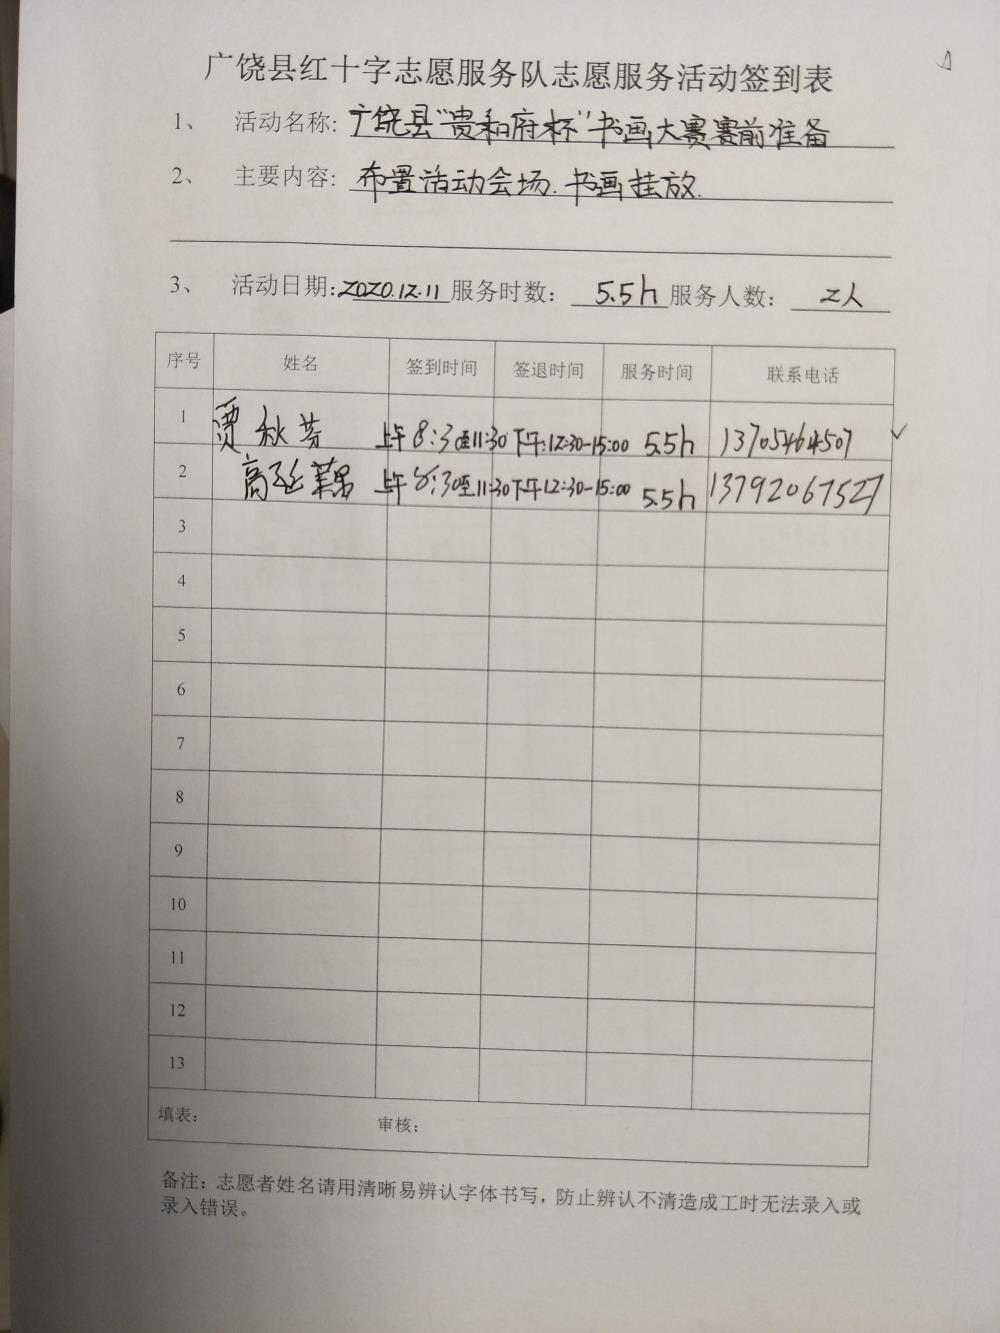 广饶县红十字志愿服务队志愿服务活动签到表
1、 活动名称: 广饶县“贵和府杯”书画大赛赛前准备
2、 主要内容: 布置活动会场.书画挂放.
3、 活动日期: 2020.12.11 服务时数: 5.5h 服务人数: 2人
序号 姓名 签到时间 签退时间 服务时间 联系电话
1 贾秋芬 上午8:30至11:30 下午:12:30-15:00 5.5h 13705464507 ✓
2 高延 上午8:30至11:30 下午12:30-15:00 5.5h 13792067527
3
4
5
6
7
8
9
10
11
12
13
填表: 审核:
备注:志愿者姓名请用清晰易辨认字体书写,防止辨认不清造成工时无法录入或
录入错误。